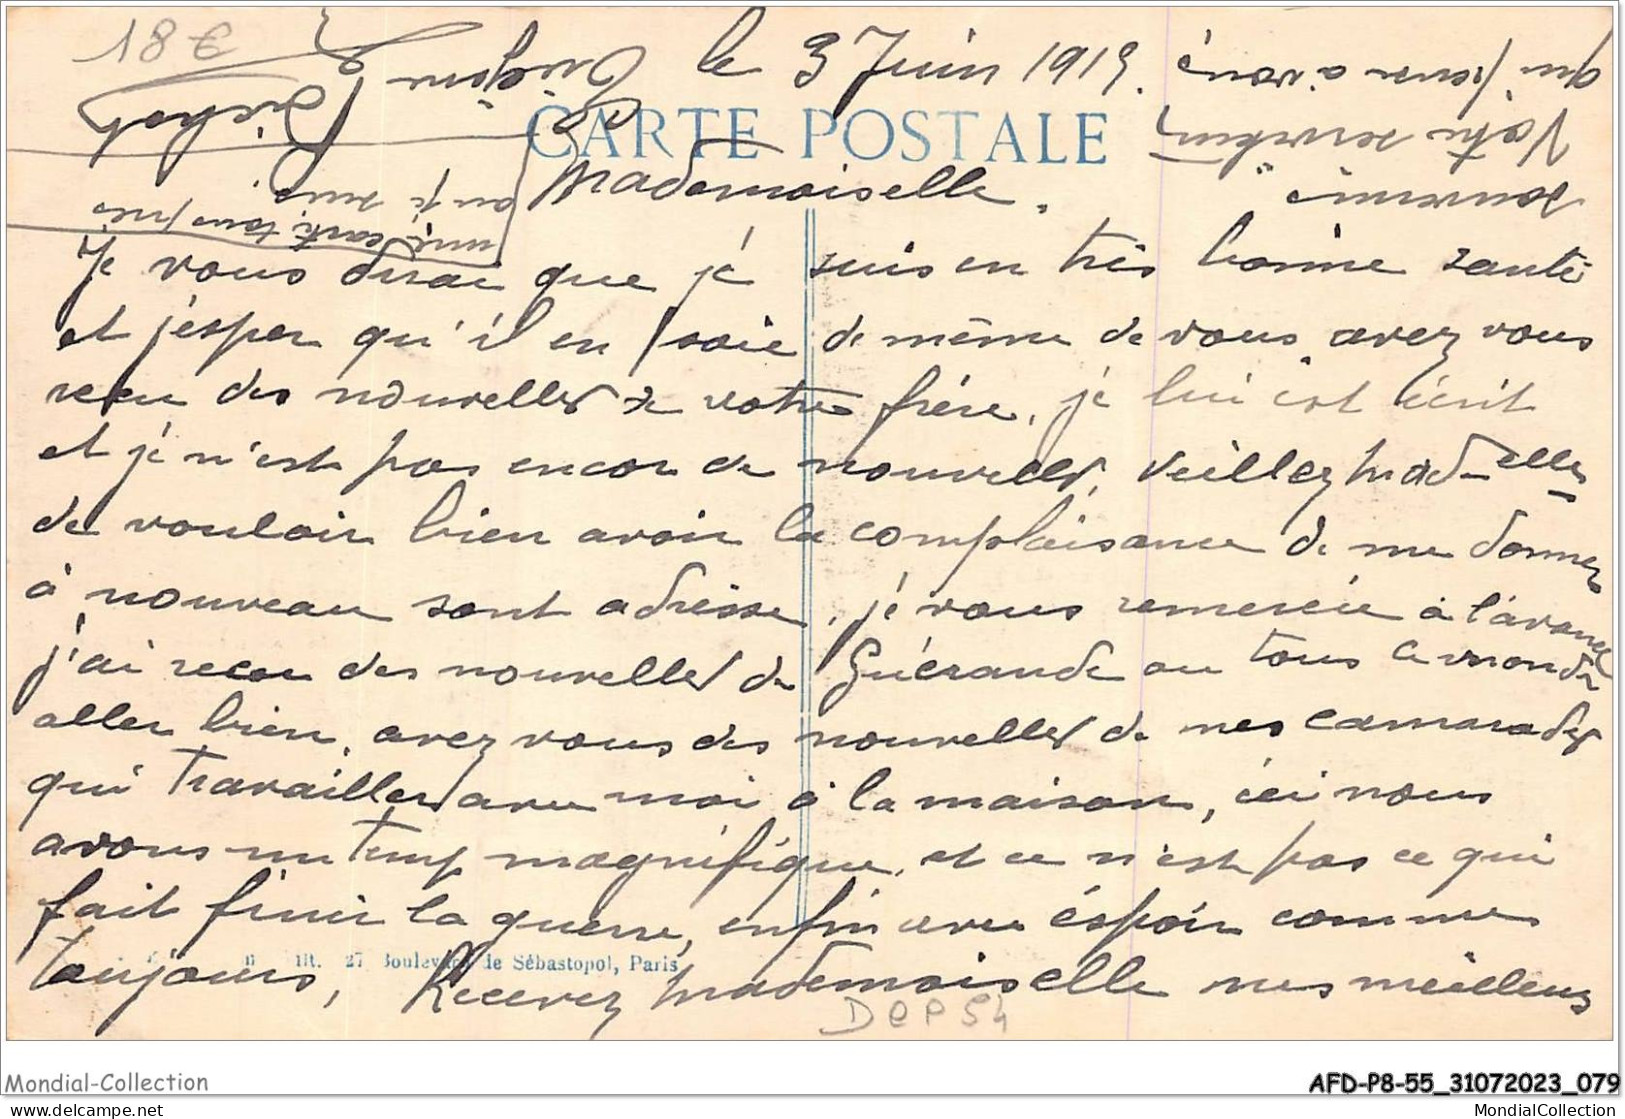 18 €
le 3 Juin 1915.
CARTE POSTALE
Mademoiselle.
Je vous dirai que je suis en très bonne santé
et j'esper qu'il en soie de même de vous, avez vous
recu des nouvelles de votre frère, je lui est écrit
et je n'est pas encor de nouvelles, veillez Mad-elles
de vouloir bien avoir la complaisance de me donner
à nouveau sont adresse, je vous remercie à l'avance
j'ai recu des nouvelles de Guérande ou tous le monde
aller bien, avez vous des nouvelles de mes camarades
qui travailler avec moi à la maison, ici nous
avons un temp magnifique, et ce n'est pas ce qui
fait finir la guerre, enfin avec éspoir comme
toujours, Recevez Mademoiselle mes meilleurs
souvenir
Votre serviteur
qui pense à vous
Pichot
27 Boulevard de Sébastopol, Paris
DEP54
Mondial-Collection
AFD-P8-55_31072023_079
https://www.delcampe.net
MondialCollection